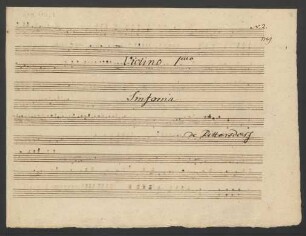 N. 2.
Violino pmo
Sinfonia
De Dittersdorf